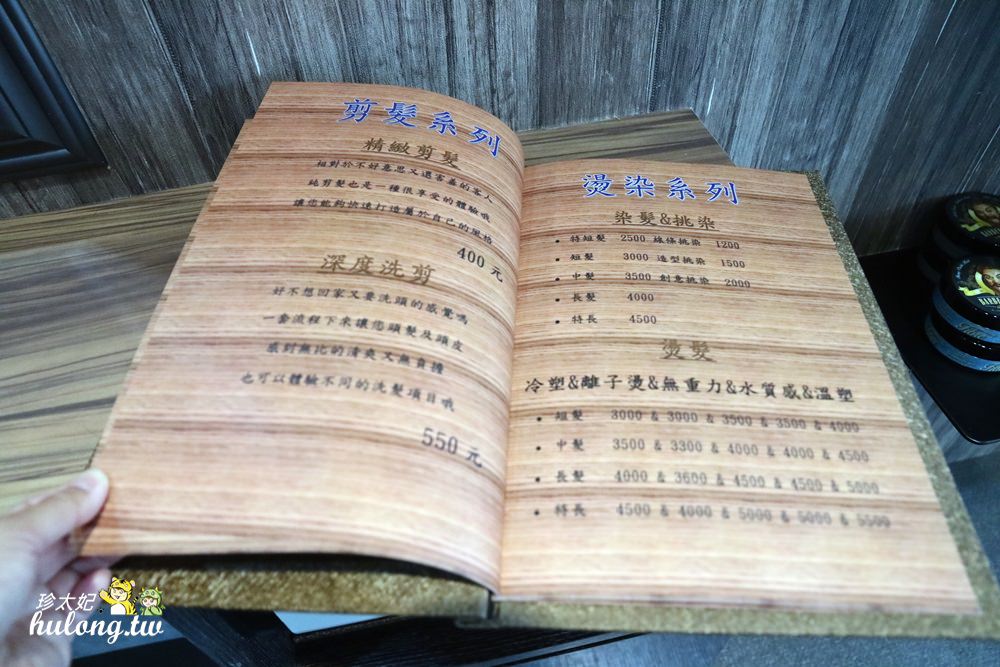 剪髮系列
精緻剪髮
相對於不好意思又還害羞的客人
純剪髮也是一種很享受的體驗哦
讓您能夠快速打造屬於自己的風格
400 元
深度洗剪
好不想回家又要洗頭的感覺嗎
一套流程下來讓您頭髮及頭皮
感到無比的清爽又無負擔
也可以體驗不同的洗髮項目哦
550 元
燙染系列
染髮&挑染
• 特短髮 2500 線條挑染 1200
• 短髮 3000 造型挑染 1500
• 中髮 3500 創意挑染 2000
• 長髮 4000
• 特長 4500
燙髮
冷塑&離子燙&無重力&水質感&溫塑
• 短髮 3000 & 3000 & 3500 & 3500 & 4000
• 中髮 3500 & 3300 & 4000 & 4000 & 4500
• 長髮 4000 & 3600 & 4500 & 4500 & 5000
• 特長 4500 & 4000 & 5000 & 5000 & 5500
珍太妃
hulong.tw